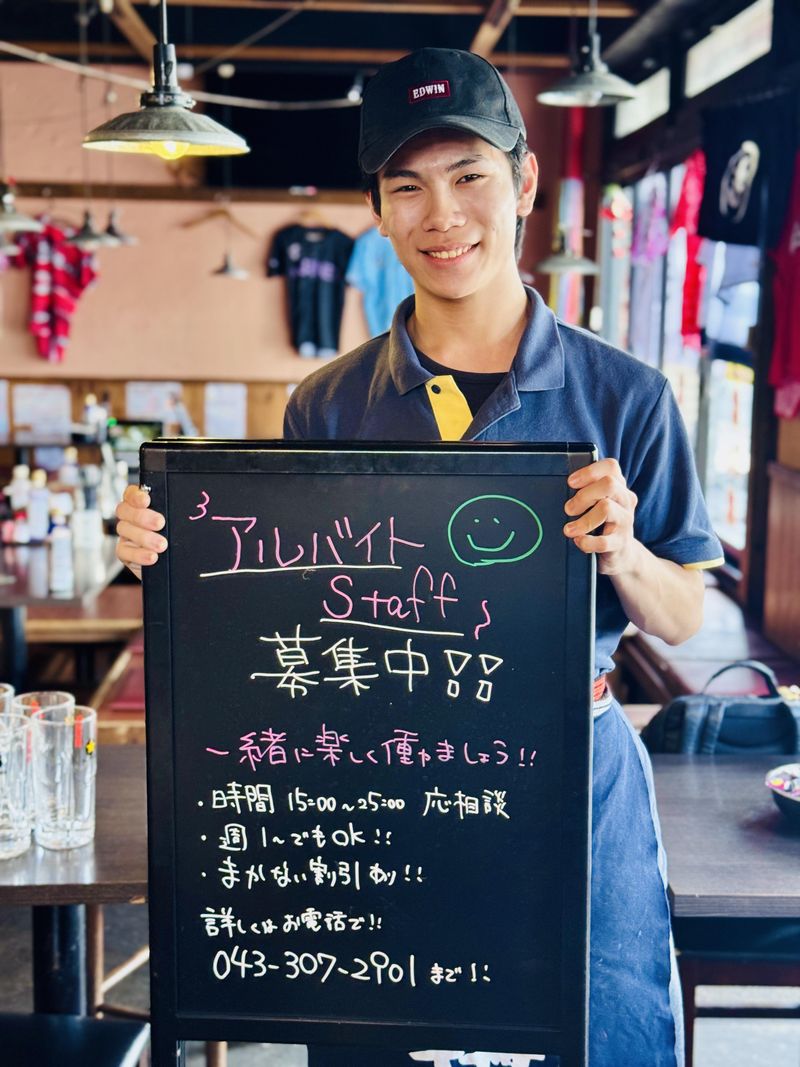 EDWIN
アルバイト
Staff
募集中!!
一緒に楽しく働きましょう!!
・時間 15:00~25:00 応相談
・週1~でもOK!!
・まかない割引あり!!
詳しくはお電話で!!
043-307-2901まで!!